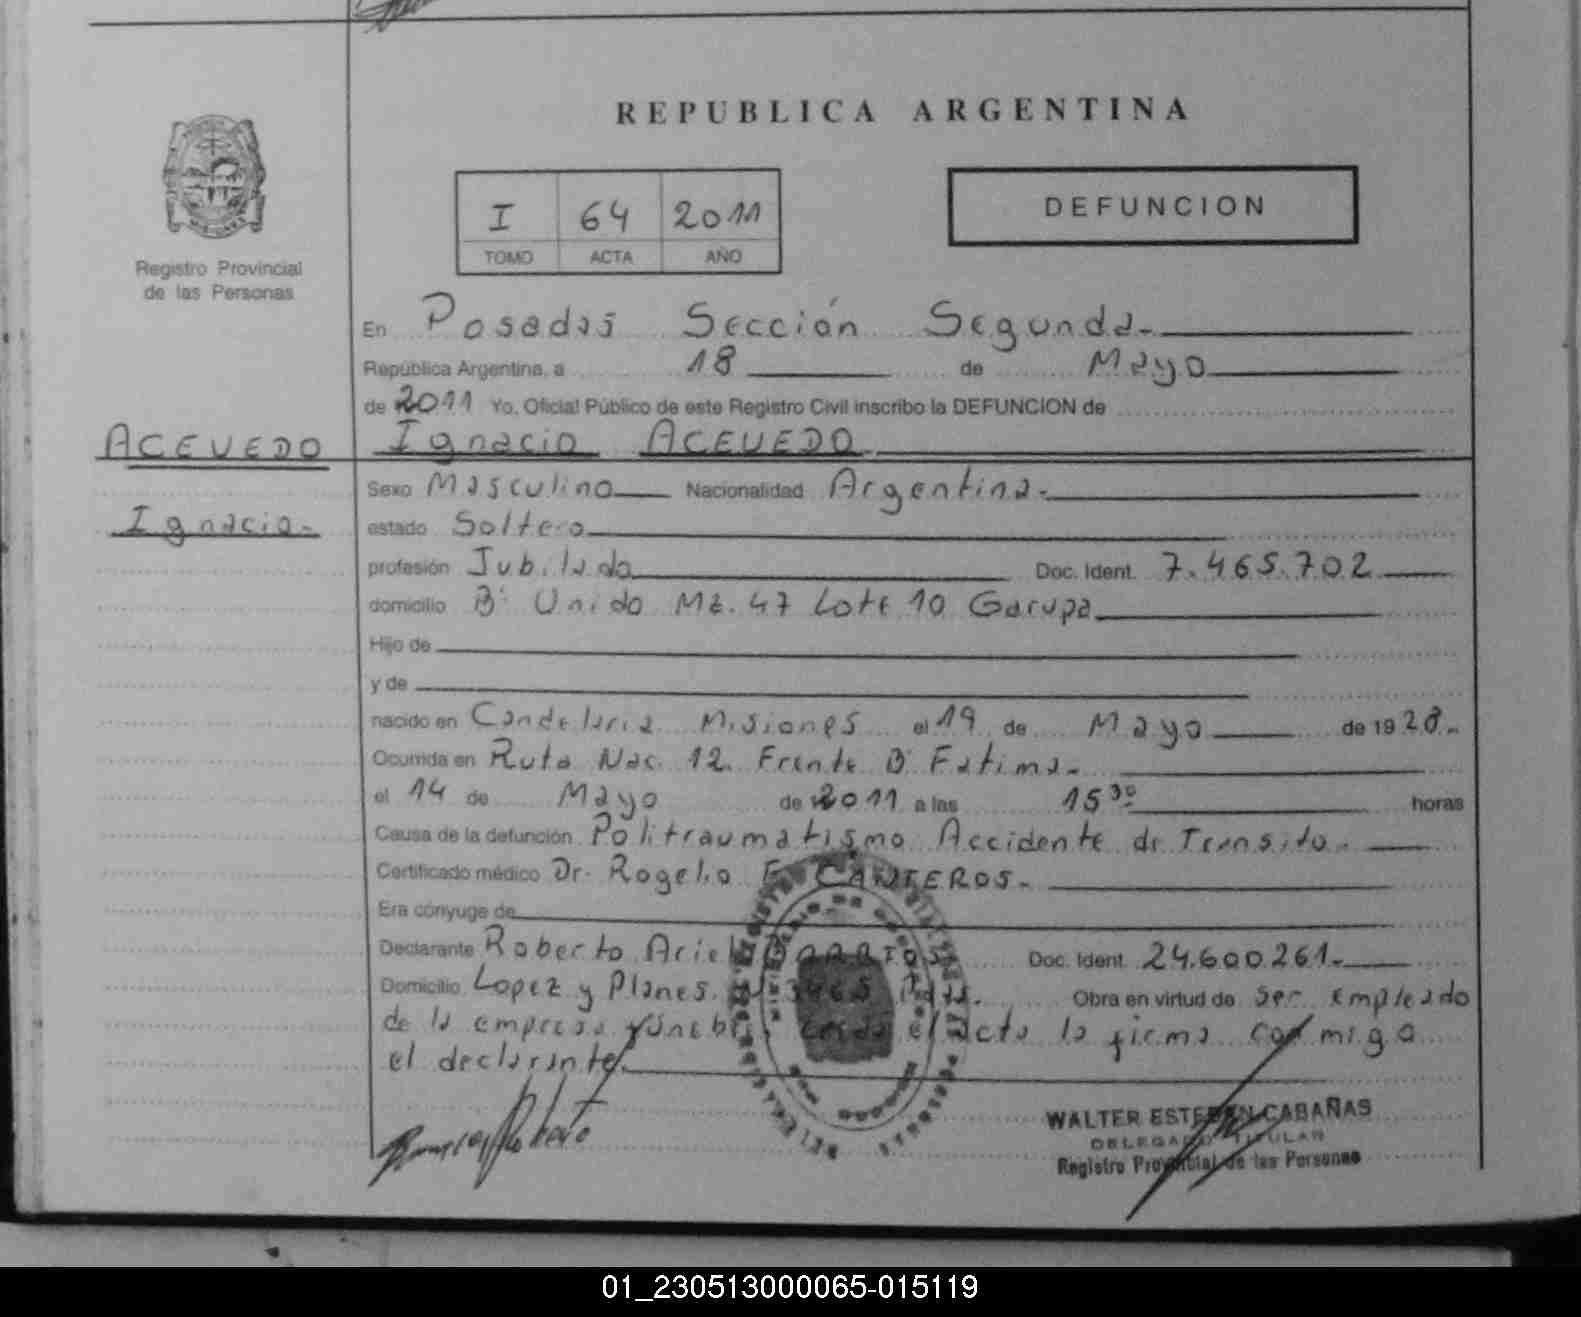 REPUBLICA ARGENTINA
I 64 2011
TOMO ACTA AÑO
DEFUNCION
Registro Provincial
de las Personas
En Posadas Sección Segunda.
República Argentina, a 18 de Mayo
de 2011 Yo, Oficial Público de este Registro Civil inscribo la DEFUNCION de
ACEVEDO
Ignacio.
Ignacio ACEVEDO
Sexo Masculino Nacionalidad Argentina.
estado Soltero
profesión Jubilado Doc. Ident. 7.465.702
domicilio B° Unido Mz. 47 Lote 10 Garupa
Hijo de
y de
nacido en Candelaria Misiones el 19 de Mayo de 1928.
Ocurrida en Ruta Nac. 12 Frente B° Fatima.
el 14 de Mayo de 2011 a las 15 30 horas
Causa de la defunción Politraumatismo Accidente de Transito.
Certificado médico Dr. Rogelio CANTEROS.
Era cónyuge de
Declarante Roberto Ariel BARRIOS Doc. Ident. 24.600.261.
Domicilio Lopez y Planes 3465 Obra en virtud de ser empleado
de la empresa funebre el acta la firma conmigo
el declarante
WALTER ESTEBAN CABAÑAS
DELEGADO TITULAR
Registro Provincial de las Personas
01_230513000065-015119